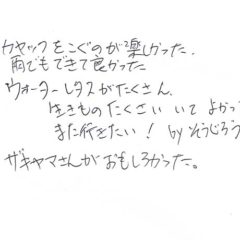 カヤックをこぐのが楽しかった。
雨でもできて良かった
ウォーターレタスがたくさん。
生きものたくさいいてよかっ
また行きたい！byそうじろう
ザキヤマさんがおもしろかった。